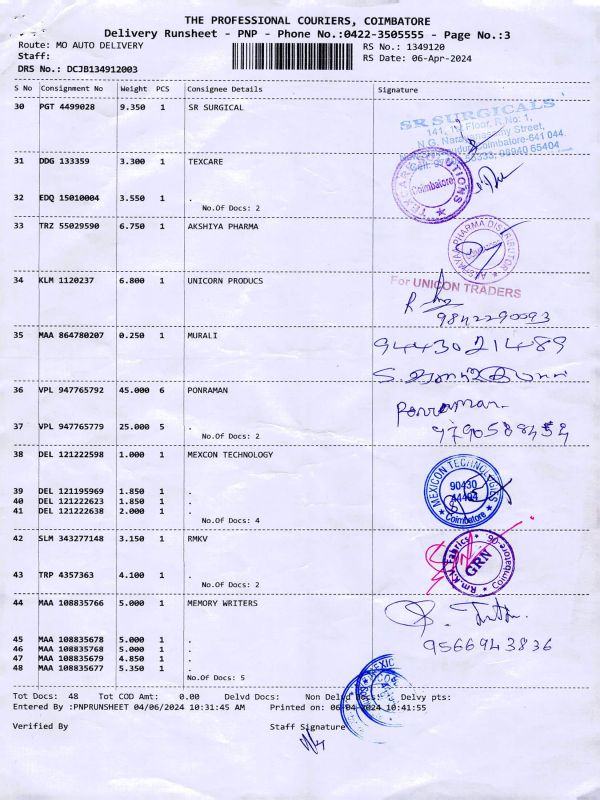 THE PROFESSIONAL COURIERS, COIMBATORE
Delivery Runsheet - PNP - Phone No.:0422-3505555 - Page No.:3
Route: MO AUTO DELIVERY RS No.: 1349120
Staff: RS Date: 06-Apr-2024
DRS No.: DCJB134912003
S No Consignment No Weight PCS Consignee Details Signature
30 PGT 4499028 9.350 1 SR SURGICAL
SR SURGICALS
31 DDG 133359 3.300 1 TEXCARE
Coimbatore
32 EDQ 15010004 3.550 1 .
No.Of Docs: 2
33 TRZ 55029590 6.750 1 AKSHIYA PHARMA
34 KLM 1120237 6.800 1 UNICORN PRODUCS
For UNICON TRADERS
9842290093
35 MAA 864780207 0.250 1 MURALI
9443021489
36 VPL 947765792 45.000 6 PONRAMAN
Ponraman
37 VPL 947765779 25.000 5 .
No.Of Docs: 2
38 DEL 121222598 1.000 1 MEXCON TECHNOLOGY
MEXICON TECHNOLOGIES
90430
44404
Coimbatore
39 DEL 121195969 1.850 1 .
40 DEL 121222623 1.850 1 .
41 DEL 121222638 2.000 1 .
No.Of Docs: 4
42 SLM 343277148 3.150 1 RMKV
Rm.KV Fabrics
GRN
Coimbatore-06
43 TRP 4357363 4.100 1 .
No.Of Docs: 2
44 MAA 108835766 5.000 1 MEMORY WRITERS
9566943836
45 MAA 108835678 5.000 1 .
46 MAA 108835768 5.000 1 .
47 MAA 108835679 4.850 1 .
48 MAA 108835677 5.350 1 .
No.Of Docs: 5
Tot Docs: 48 Tot COD Amt: 0.00 Delvd Docs: Non Delvd Docs: Delvy pts:
Entered By :PNPRUNSHEET 04/06/2024 10:31:45 AM Printed on: 06-04-2024 10:41:55
Verified By Staff Signature